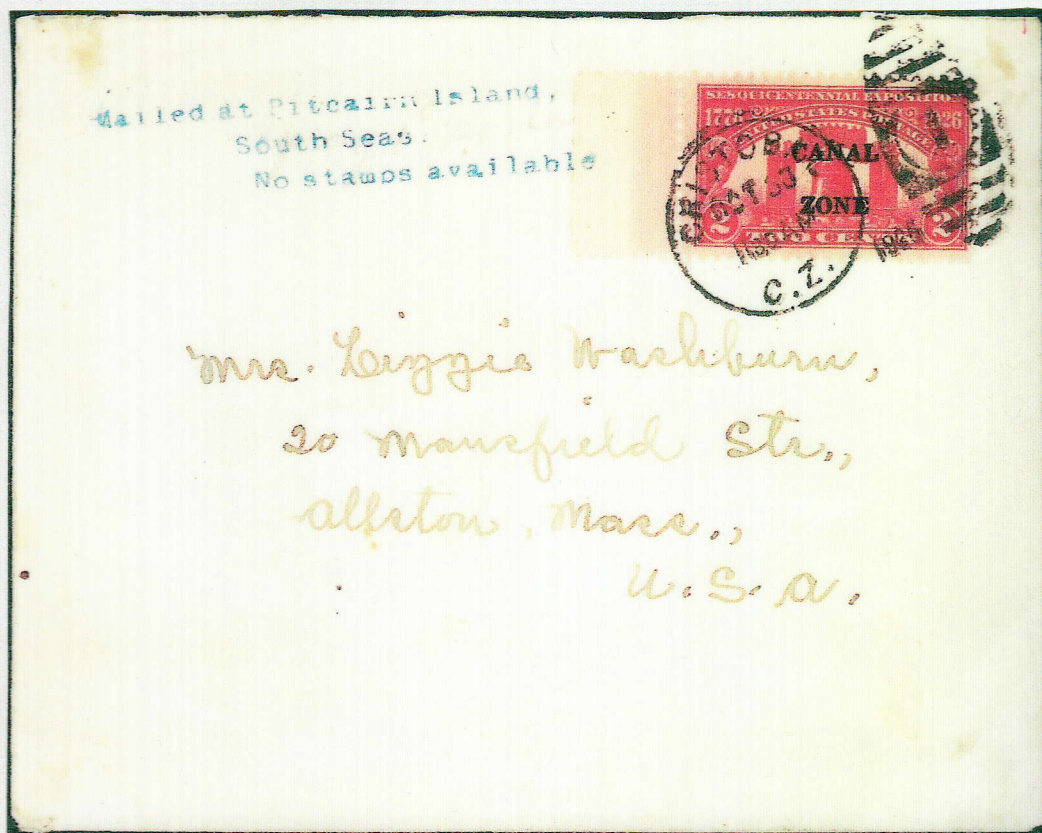 Mailed at Pitcairn Island,
South Seas.
No stamps available
SESQUICENTENNIAL EXPOSITION
1776 1926
UNITED STATES POSTAGE
CANAL
ZONE
2 TWO CENTS 2
CRISTOBAL
OCT 30
AM
C.Z.
Mrs. Lizzie Washburn,
20 Mansfield Str.,
Allston, Mass.,
U.S.A.